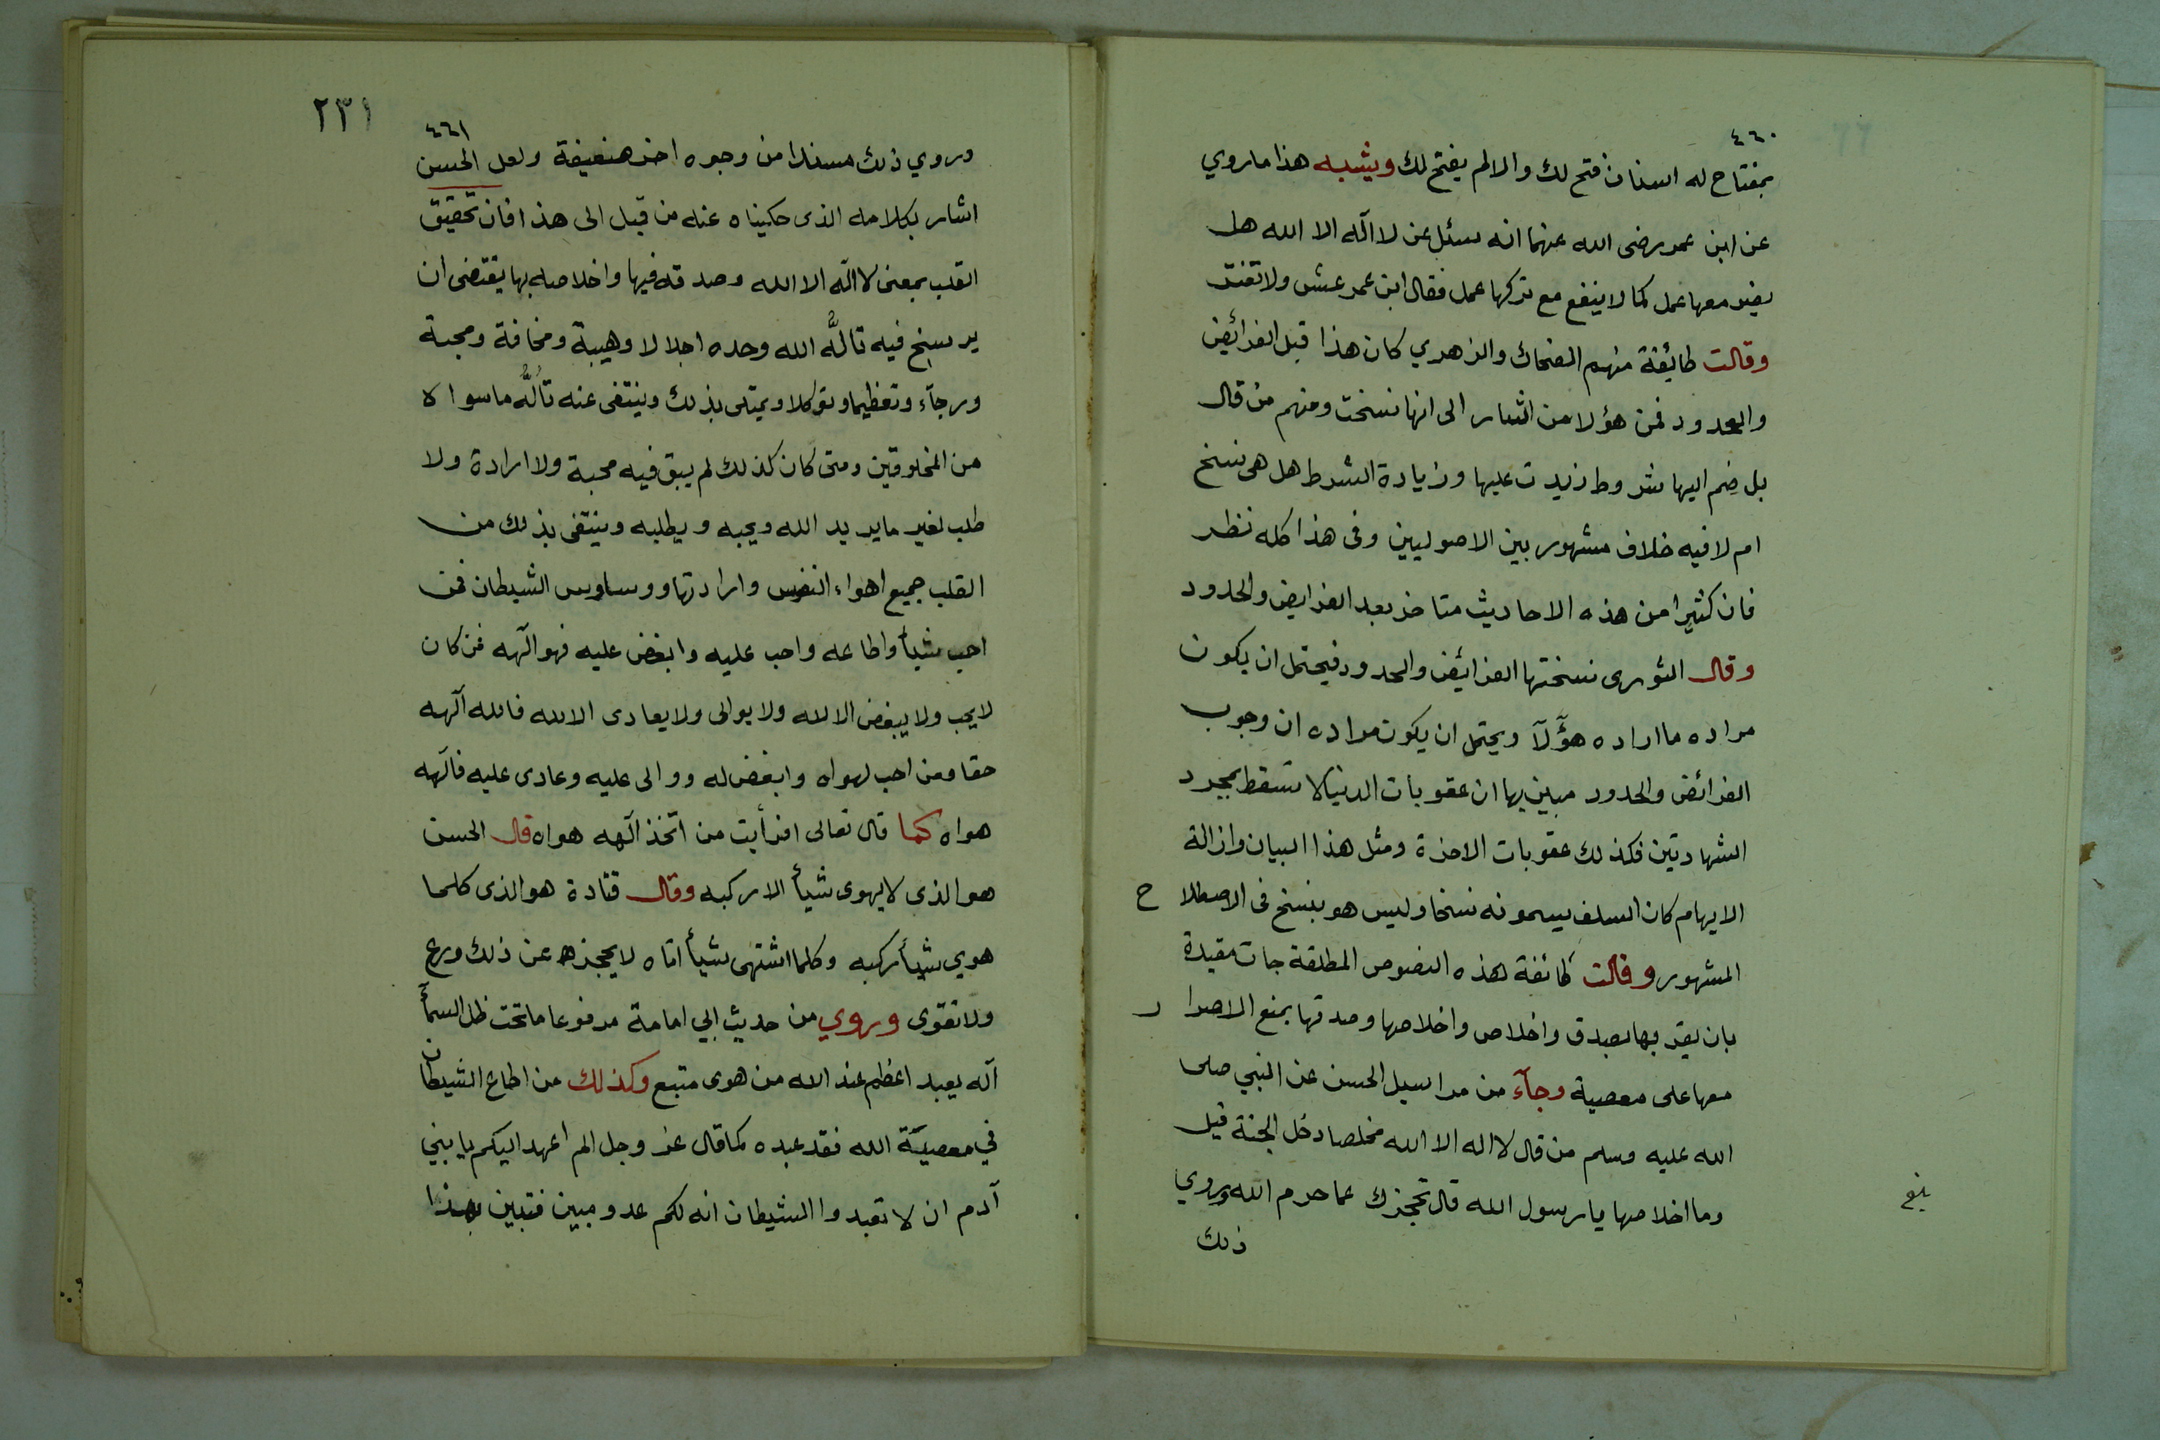 ٤٦٠
بمفتاح له اسنان فتح لك والا لم يفتح لك ويشبه هذا ما روي
عن ابن عمر رضى الله عنهما انه سئل عن لا اله الا الله هل
يضر معها عمل كما لا ينفع مع تركها عمل فقال ابن عمر عش ولا تغتر
وقالت طائفة منهم الضحاك والزهري كان هذا قبل الفرائض
والحدود فمن هؤلا من اشار الى انها نسخت ومنهم من قال
بل ضم اليها شروط زيدت عليها وزيادة الشرط هل هى نسخ
ام لا فيه خلاف مشهور بين الاصوليين وفى هذا كله نظر
فان كثيرا من هذه الاحاديث متاخر بعد الفرايض والحدود
وقال الثورى نسختها الفرائض والحدود فيحتمل ان يكون
مراده ما اراده هؤلآ ويحتمل ان يكون مراده ان وجوب
الفرائض والحدود مبين بها ان عقوبات الدنيا لا تسقط بمجرد
الشهادتين فكذلك عقوبات الاخرة ومثل هذا البيان وازالة
الايهام كان السلف يسمونه نسخا وليس هو بنسخ فى الاصطلا ح
المشهور وقالت طائفة هذه النصوص المطلقة جات مقيدة
بان يقر بها بصدق واخلاص واخلاصها وصدقها يمنع الاصرا ر
معها على معصية وجآء من مراسيل الحسن عن النبي صلى
الله عليه وسلم من قال لا اله الا الله مخلصا دخل الجنة قيل
وما اخلاصها يا رسول الله قال تحجزك عما حرم الله وروي
ذلك
بلغ
٢٣١
٤٦١
وروي ذلك مسندا من وجوه اخر ضعيفة ولعل الحسن
اشار بكلامه الذى حكيناه عنه من قبل الى هذا فان تحقيق
القلب بمعنى لا اله الا الله وصدقه فيها واخلاصه بها يقتضى ان
يرسخ فيه تألُّه الله وحده اجلالا وهيبة ومخافة ومحبة
ورجآء وتعظيما وتوكلا ويمتلى بذلك وينتفى عنه تألُّه ما سوا ه
من المخلوقين ومتى كان كذلك لم يبق فيه محبة ولا ارادة ولا
طلب لغير ما يريد الله ويحبه ويطلبه وينتفى بذلك من
القلب جميع اهواء النفس وارادتها ووساوس الشيطان فمن
احب شيأ واطاعه واحب عليه وابغض عليه فهو الهه فمن كان
لا يحب ولا يبغض الا لله ولا يوالى ولا يعادى الا لله فالله الهه
حقا ومن احب لهواه وابغض له ووالى عليه وعادى عليه فالهه
هواه كما قال تعالى افرأيت من اتخذ الهه هواه قال الحسن
هو الذى لا يهوى شيأ الا ركبه وقال قتادة هو الذى كلما
هوي شيأ ركبه وكلما اشتهى شيأ اتاه لا يحجزه عن ذلك ورع
ولا تقوى وروي من حديث ابي امامة مرفوعا ما تحت ظل السمأ
اله يعبد اعظم عند الله من هوى متبع وكذلك من اطاع الشيطان
في معصية الله فقد عبده كما قال عز وجل الم اعهد اليكم يا بني
آدم ان لا تعبدوا الشيطان انه لكم عدو مبين فتبين بهذا